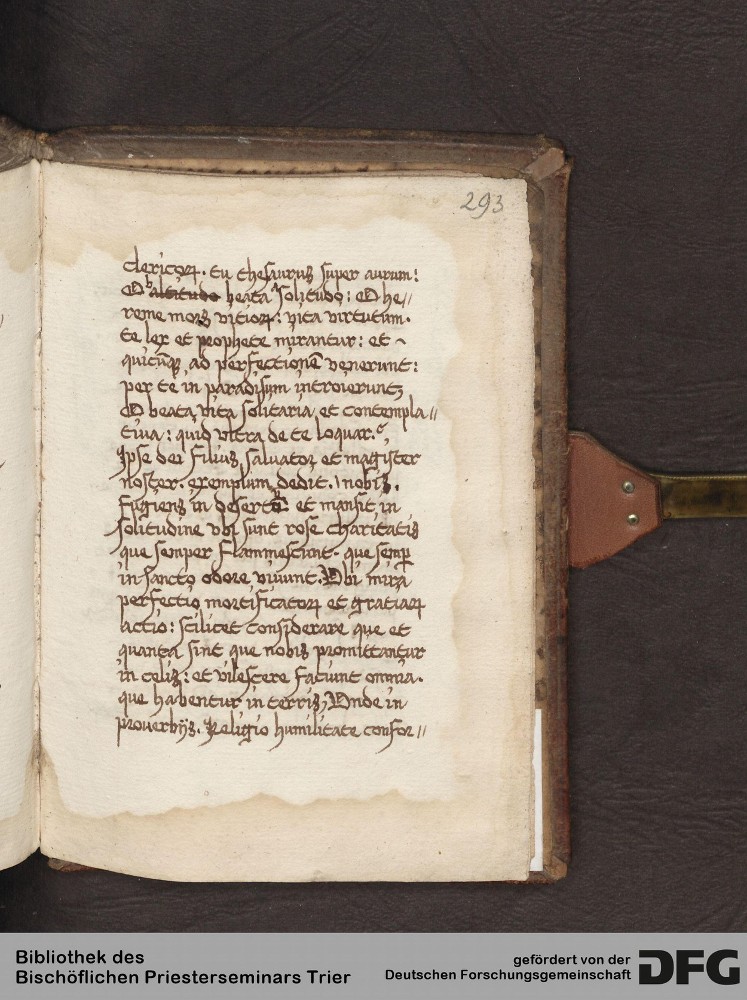 293
clericoꝝ. tu thesaurus super aurum:
O altitudo beata solitudo: O he//
reme mors vitioꝝ: vita virtutum.
te lex et prophete mirantur: et ~
quicūqꝫ ad perfectionē venerunt:
per te in paradisum introierunt;
O beata vita solitaria et contempla//
tiua: quid vltra de te loquar.
Ipse dei filius saluator et magister
noster. exemplum dedit nobis.
fugiens in deserto et mansit in
solitudine vbi sunt rose charitatis
que semper flammescunt. que semp̄
in sancto odore viuunt. Vbi mira
perfectio mortificatoꝝ et gratiaꝝ
actio: scilicet considerare que et
quanta sint que nobis promittantur
in celis: et vilescere faciunt omnia.
que habentur in terris; Vnde in
prouerbijs. Religio humilitate confor//
Bibliothek des
Bischöflichen Priesterseminars Trier
gefördert von der
Deutschen Forschungsgemeinschaft
DFG